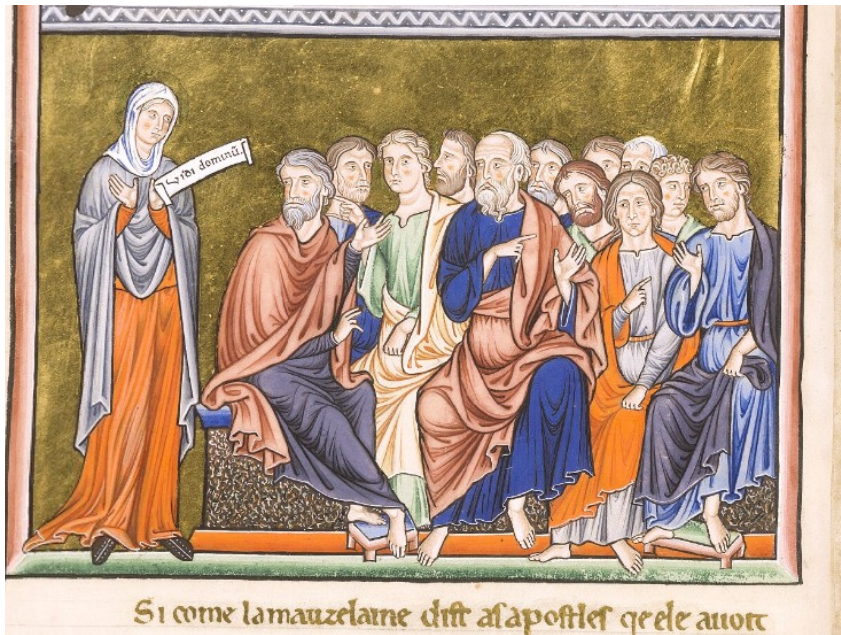 Vidi dominū.
Si come lamauzelaine dist as apostles qe ele auoit